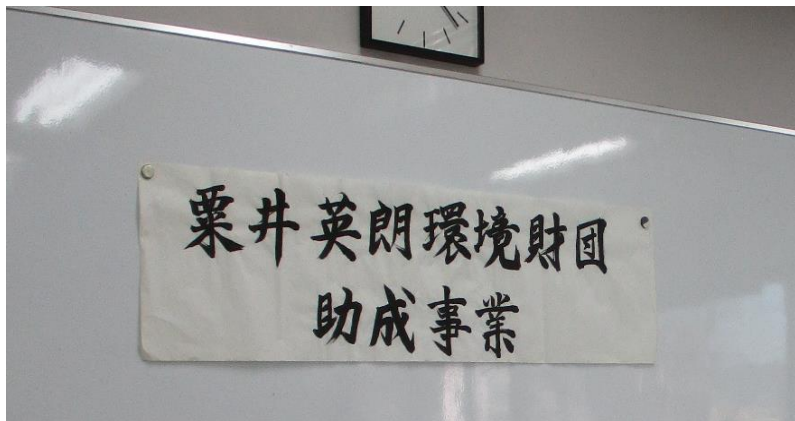 粟井英朗環境財団
助成事業